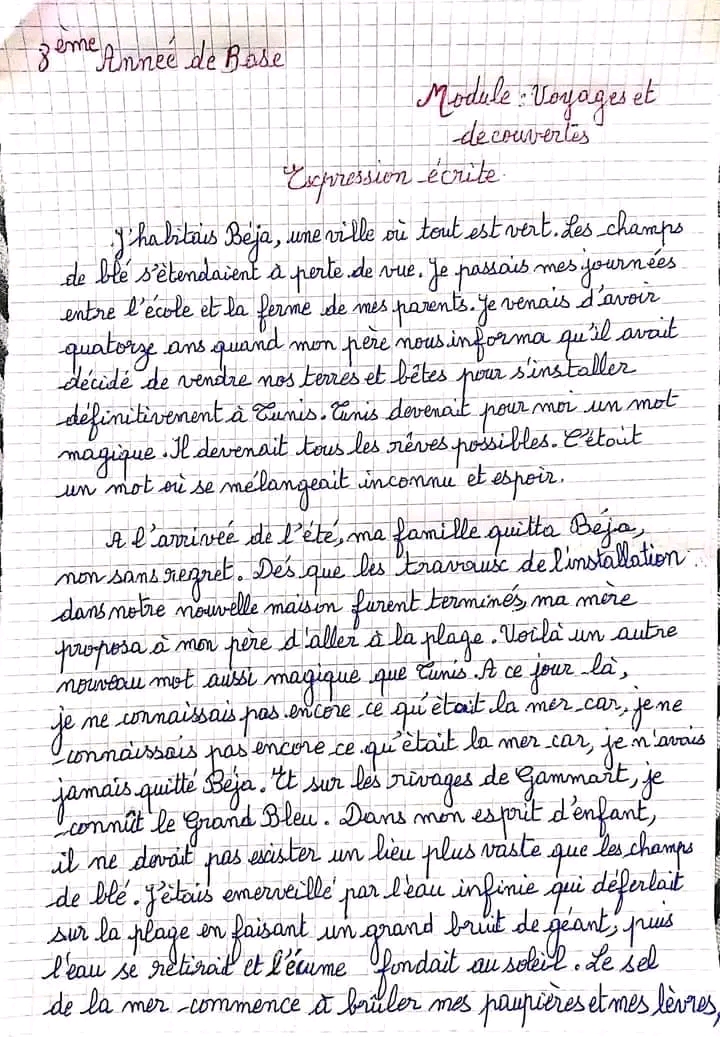 8ème Anneé de Base
Module : Voyages et
découvertes
Expression écrite
J'habitais Béja, une ville où tout est vert. Les champs
de blé s'étendaient à perte de vue. Je passais mes journées
entre l'école et la ferme de mes parents. Je venais d'avoir
quatorze ans quand mon père nous informa qu'il avait
décidé de vendre nos terres et bêtes pour s'installer
définitivement à Tunis. Tunis devenait pour moi un mot
magique. Il devenait tous les rêves possibles. C'était
un mot où se mélangeait inconnu et espoir.
A l'arriveé de l'été, ma famille quitta Béja,
non sans regret. Dés que les travaux de l'installation
dans notre nouvelle maison furent terminés, ma mère
proposa à mon père d'aller à la plage. Voilà un autre
nouveau mot aussi magique que Tunis. A ce jour là,
je ne connaissais pas encore ce qu'était la mer car, je ne
connaissais pas encore ce qu'ètait la mer car, je n'avais
jamais quitté Béja. Et sur les rivages de Gammart, je
connût le Grand Bleu. Dans mon esprit d'enfant,
il ne devait pas exister un lieu plus vaste que les champs
de blé. J'ètais emerveillé par l'eau infinie qui déferlait
sur la plage en faisant un grand bruit de géant, puis
l'eau se retirait et l'écume fondait au soleil. Le sel
de la mer commence à brûler mes paupières et mes lèvres,